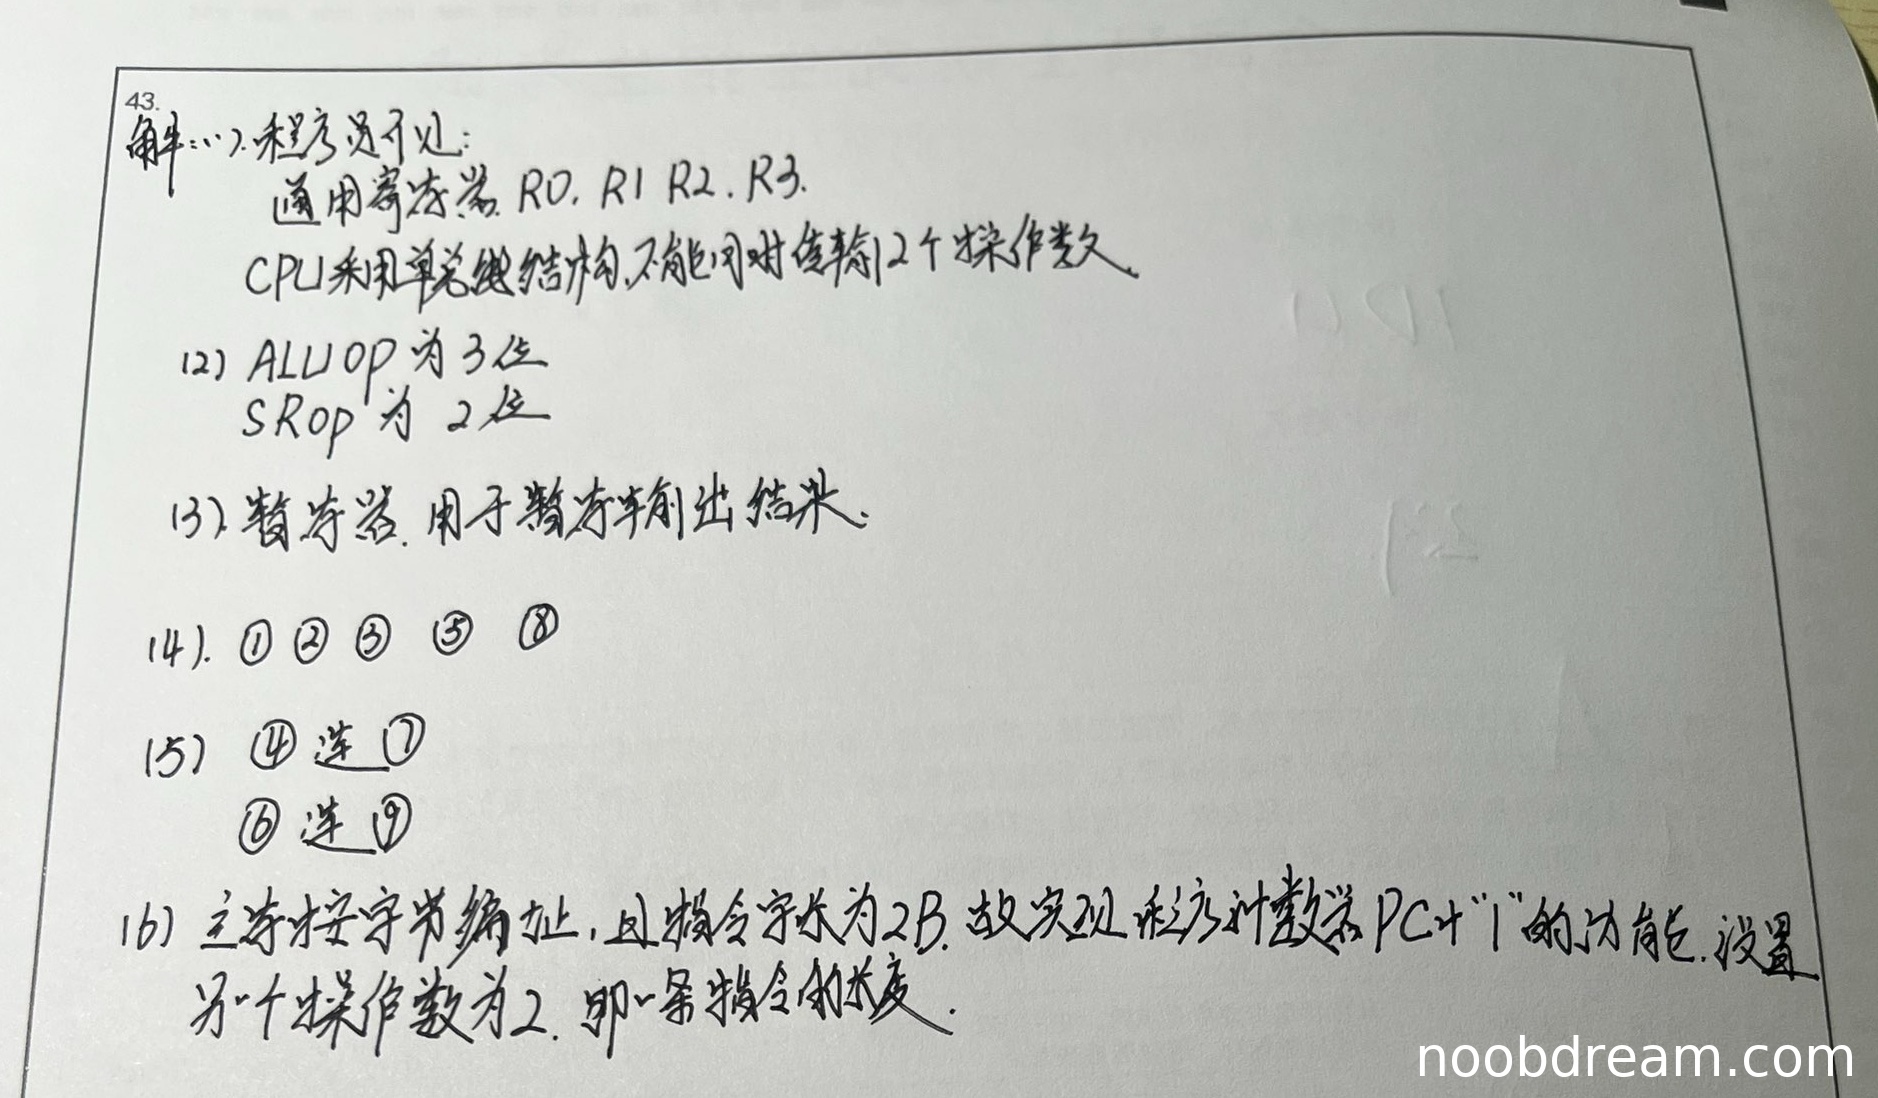 43.
解:(1).程序员可见:
通用寄存器 R0. R1 R2. R3.
CPU采用单总线结构,不能同时传输2个操作数.
(2) ALUop 为3位
SRop 为 2位
(3).暂存器.用于暂存输出结果.
(4). ① ② ③ ⑤ ⑧
(5) ④ 连 ⑦
⑥ 连 ⑨
(6) 主存按字节编址,且指令字长为2B.故实现程序计数器PC+“1”的功能.设置
另一个操作数为2.即一条指令的长度.
noobdream.com